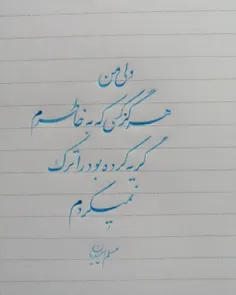 ولی من
هرگز کسی که به خاطرم
گریه کرده بود را ترک
نمیکردم
مسلم